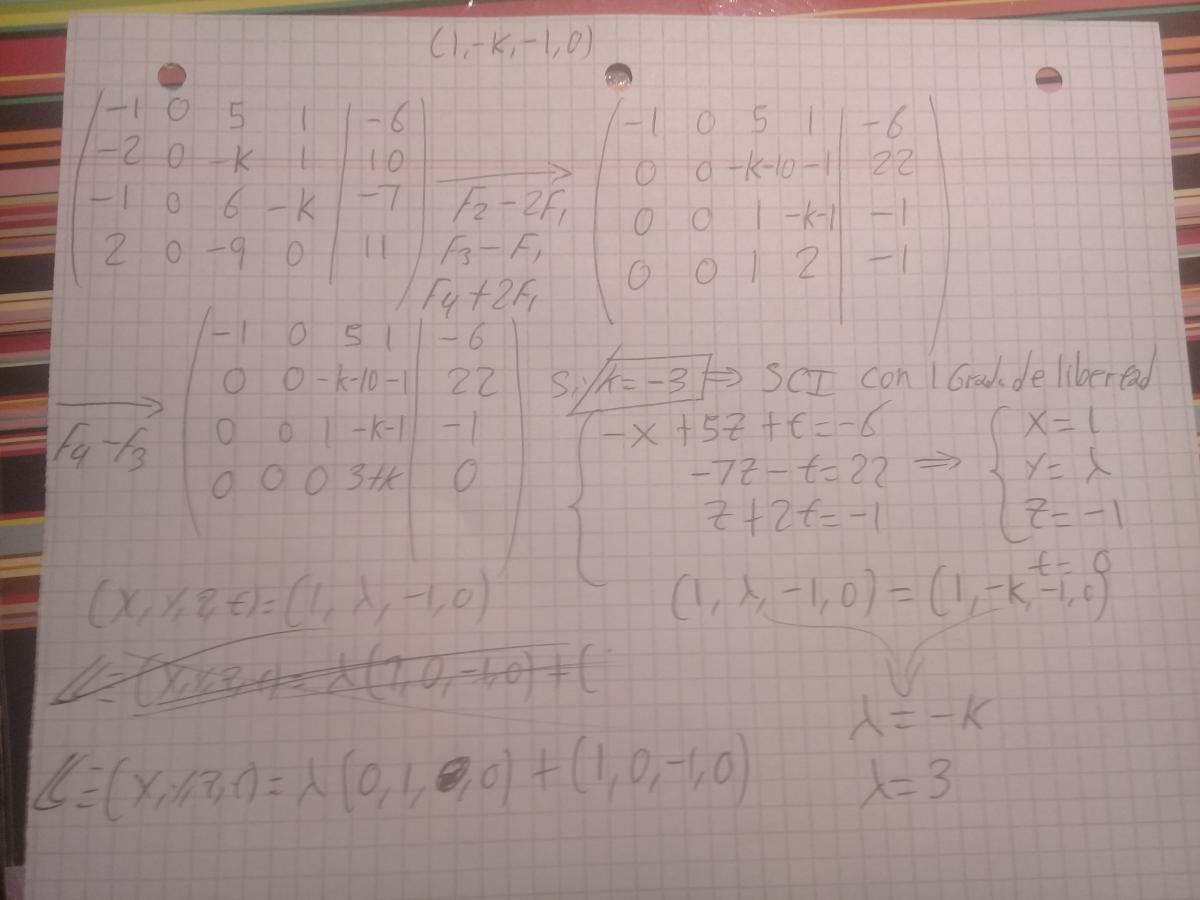 (1,-K,-1,0)
-1 0 5 1 | -6
-2 0 -K 1 | 10
-1 0 6 -K | -7
2 0 -9 0 | 11
F2-2F1
F3-F1
F4+2F1
-1 0 5 1 | -6
0 0 -K-10 -1 | 22
0 0 1 -K-1 | -1
0 0 1 2 | -1
F4-F3
-1 0 5 1 | -6
0 0 -K-10 -1 | 22
0 0 1 -K-1 | -1
0 0 0 3+K | 0
Si K=-3 => SCI con 1 Grad. de libertad
-x+5z+t=-6
-7z-t=22 =>
z+2t=-1
x=1
y=λ
z=-1
t=0
(x,y,z,t)=(1,λ,-1,0)
(1,λ,-1,0)=(1,-K,-1,0)
λ=-K
λ=3
L≡(x,y,z,t)=λ(1,0,-1,0)+(
L≡(x,y,z,t)=λ(0,1,0,0)+(1,0,-1,0)